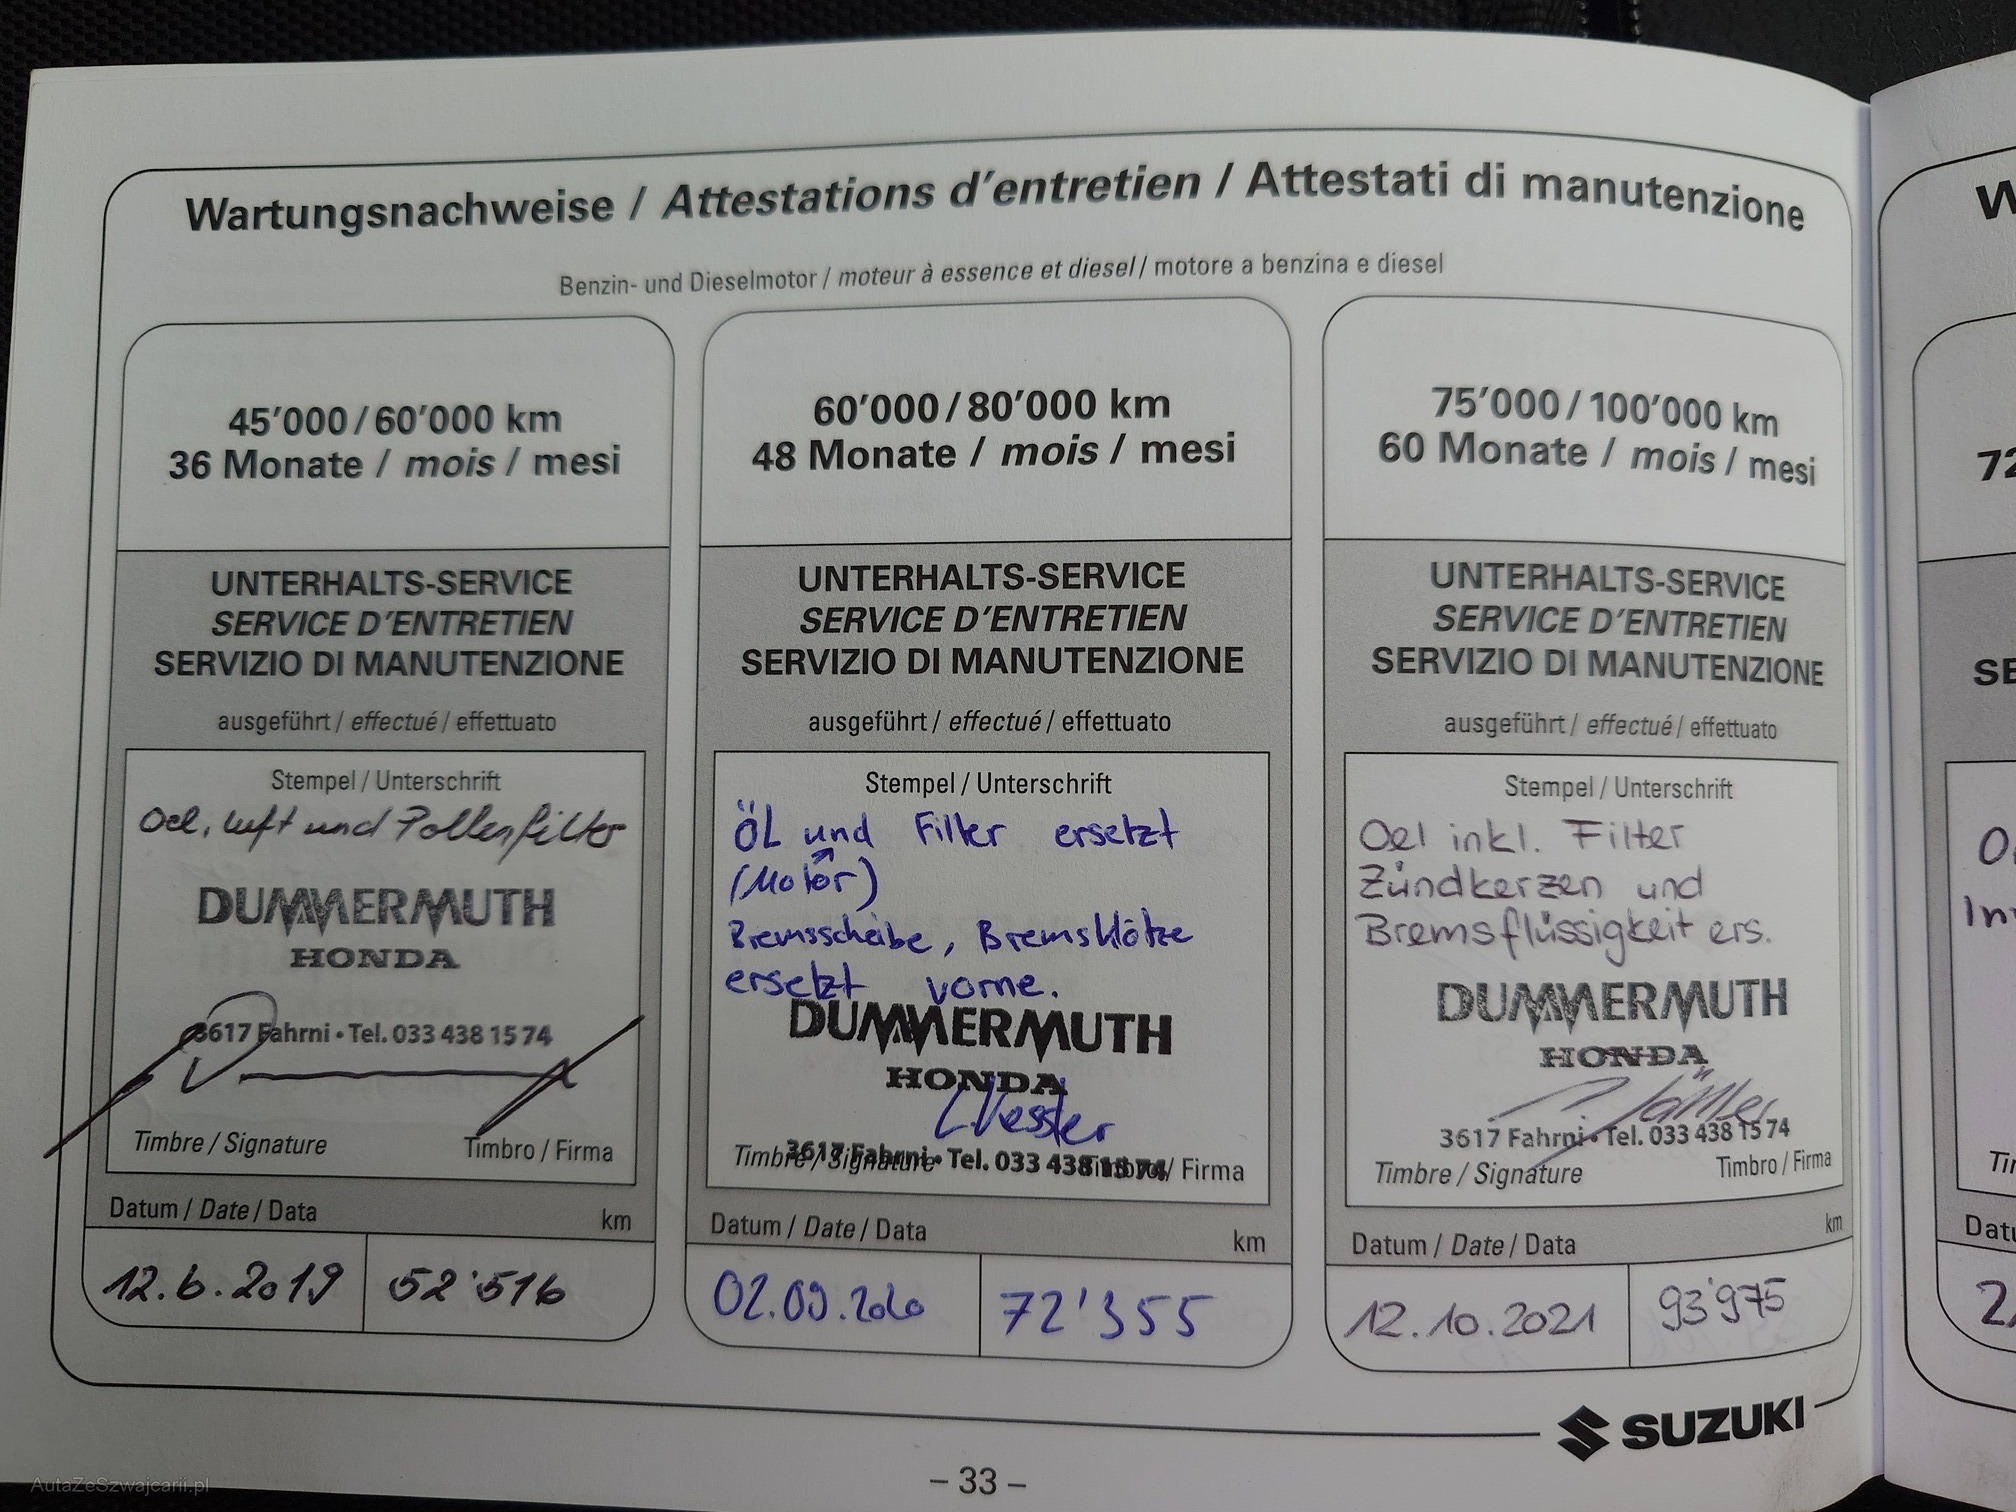 Wartungsnachweise / Attestations d'entretien / Attestati di manutenzione
Benzin- und Dieselmotor / moteur à essence et diesel / motore a benzina e diesel
45'000 / 60'000 km
36 Monate / mois / mesi
UNTERHALTS-SERVICE
SERVICE D'ENTRETIEN
SERVIZIO DI MANUTENZIONE
ausgeführt / effectué / effettuato
Stempel / Unterschrift
Oel, Luft und Pollenfilter
DUMMERMUTH
HONDA
3617 Fahrni • Tel. 033 438 15 74
Timbre / Signature Timbro / Firma
Datum / Date / Data km
12.6.2019 52'516
60'000 / 80'000 km
48 Monate / mois / mesi
UNTERHALTS-SERVICE
SERVICE D'ENTRETIEN
SERVIZIO DI MANUTENZIONE
ausgeführt / effectué / effettuato
Stempel / Unterschrift
ÖL und Filter ersetzt
(Motor)
Bremsscheibe, Bremsklötze
ersetzt vorne.
DUMMERMUTH
HONDA
3617 Fahrni • Tel. 033 438 15 74
Timbre / Signature Timbro / Firma
Datum / Date / Data km
02.09.2020 72'355
75'000 / 100'000 km
60 Monate / mois / mesi
UNTERHALTS-SERVICE
SERVICE D'ENTRETIEN
SERVIZIO DI MANUTENZIONE
ausgeführt / effectué / effettuato
Stempel / Unterschrift
Oel inkl. Filter
Zündkerzen und
Bremsflüssigkeit ers.
DUMMERMUTH
HONDA
3617 Fahrni • Tel. 033 438 15 74
Timbre / Signature Timbro / Firma
Datum / Date / Data km
12.10.2021 93'975
SUZUKI
– 33 –
AutaZeSzwajcarii.pl